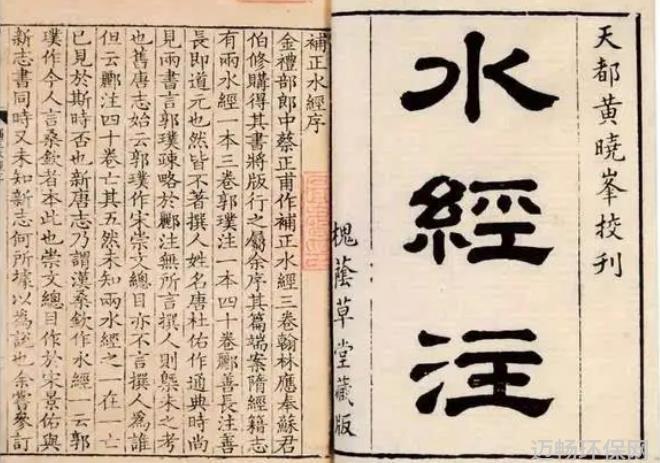 天都黃曉峯挍刋
水經注
槐蔭草堂藏版
補正水經序
金禮部郎中蔡正甫作補正水經三卷翰林應奉蘇君
伯修購得其書將版行之屬余序其篇端案隋經籍志
有兩水經一本三卷郭璞注一本四十卷酈善長注善
長即道元也然皆不著撰人姓名唐杜佑作通典時尚
見兩書言郭璞疎略於酈注無所言撰人則槩未之考
也舊唐志始云郭璞作宋崇文總目亦不言撰人為誰
但云酈注四十卷亡其五然未知兩水經之一在一亡
已見於斯時否也新唐志乃謂漢桑欽作水經一云郭
璞作今人言桑欽者本此也崇文總目作於宋景佑與
新志書同時又未知新志何所據以為說也余嘗參訂
迈畅环保网